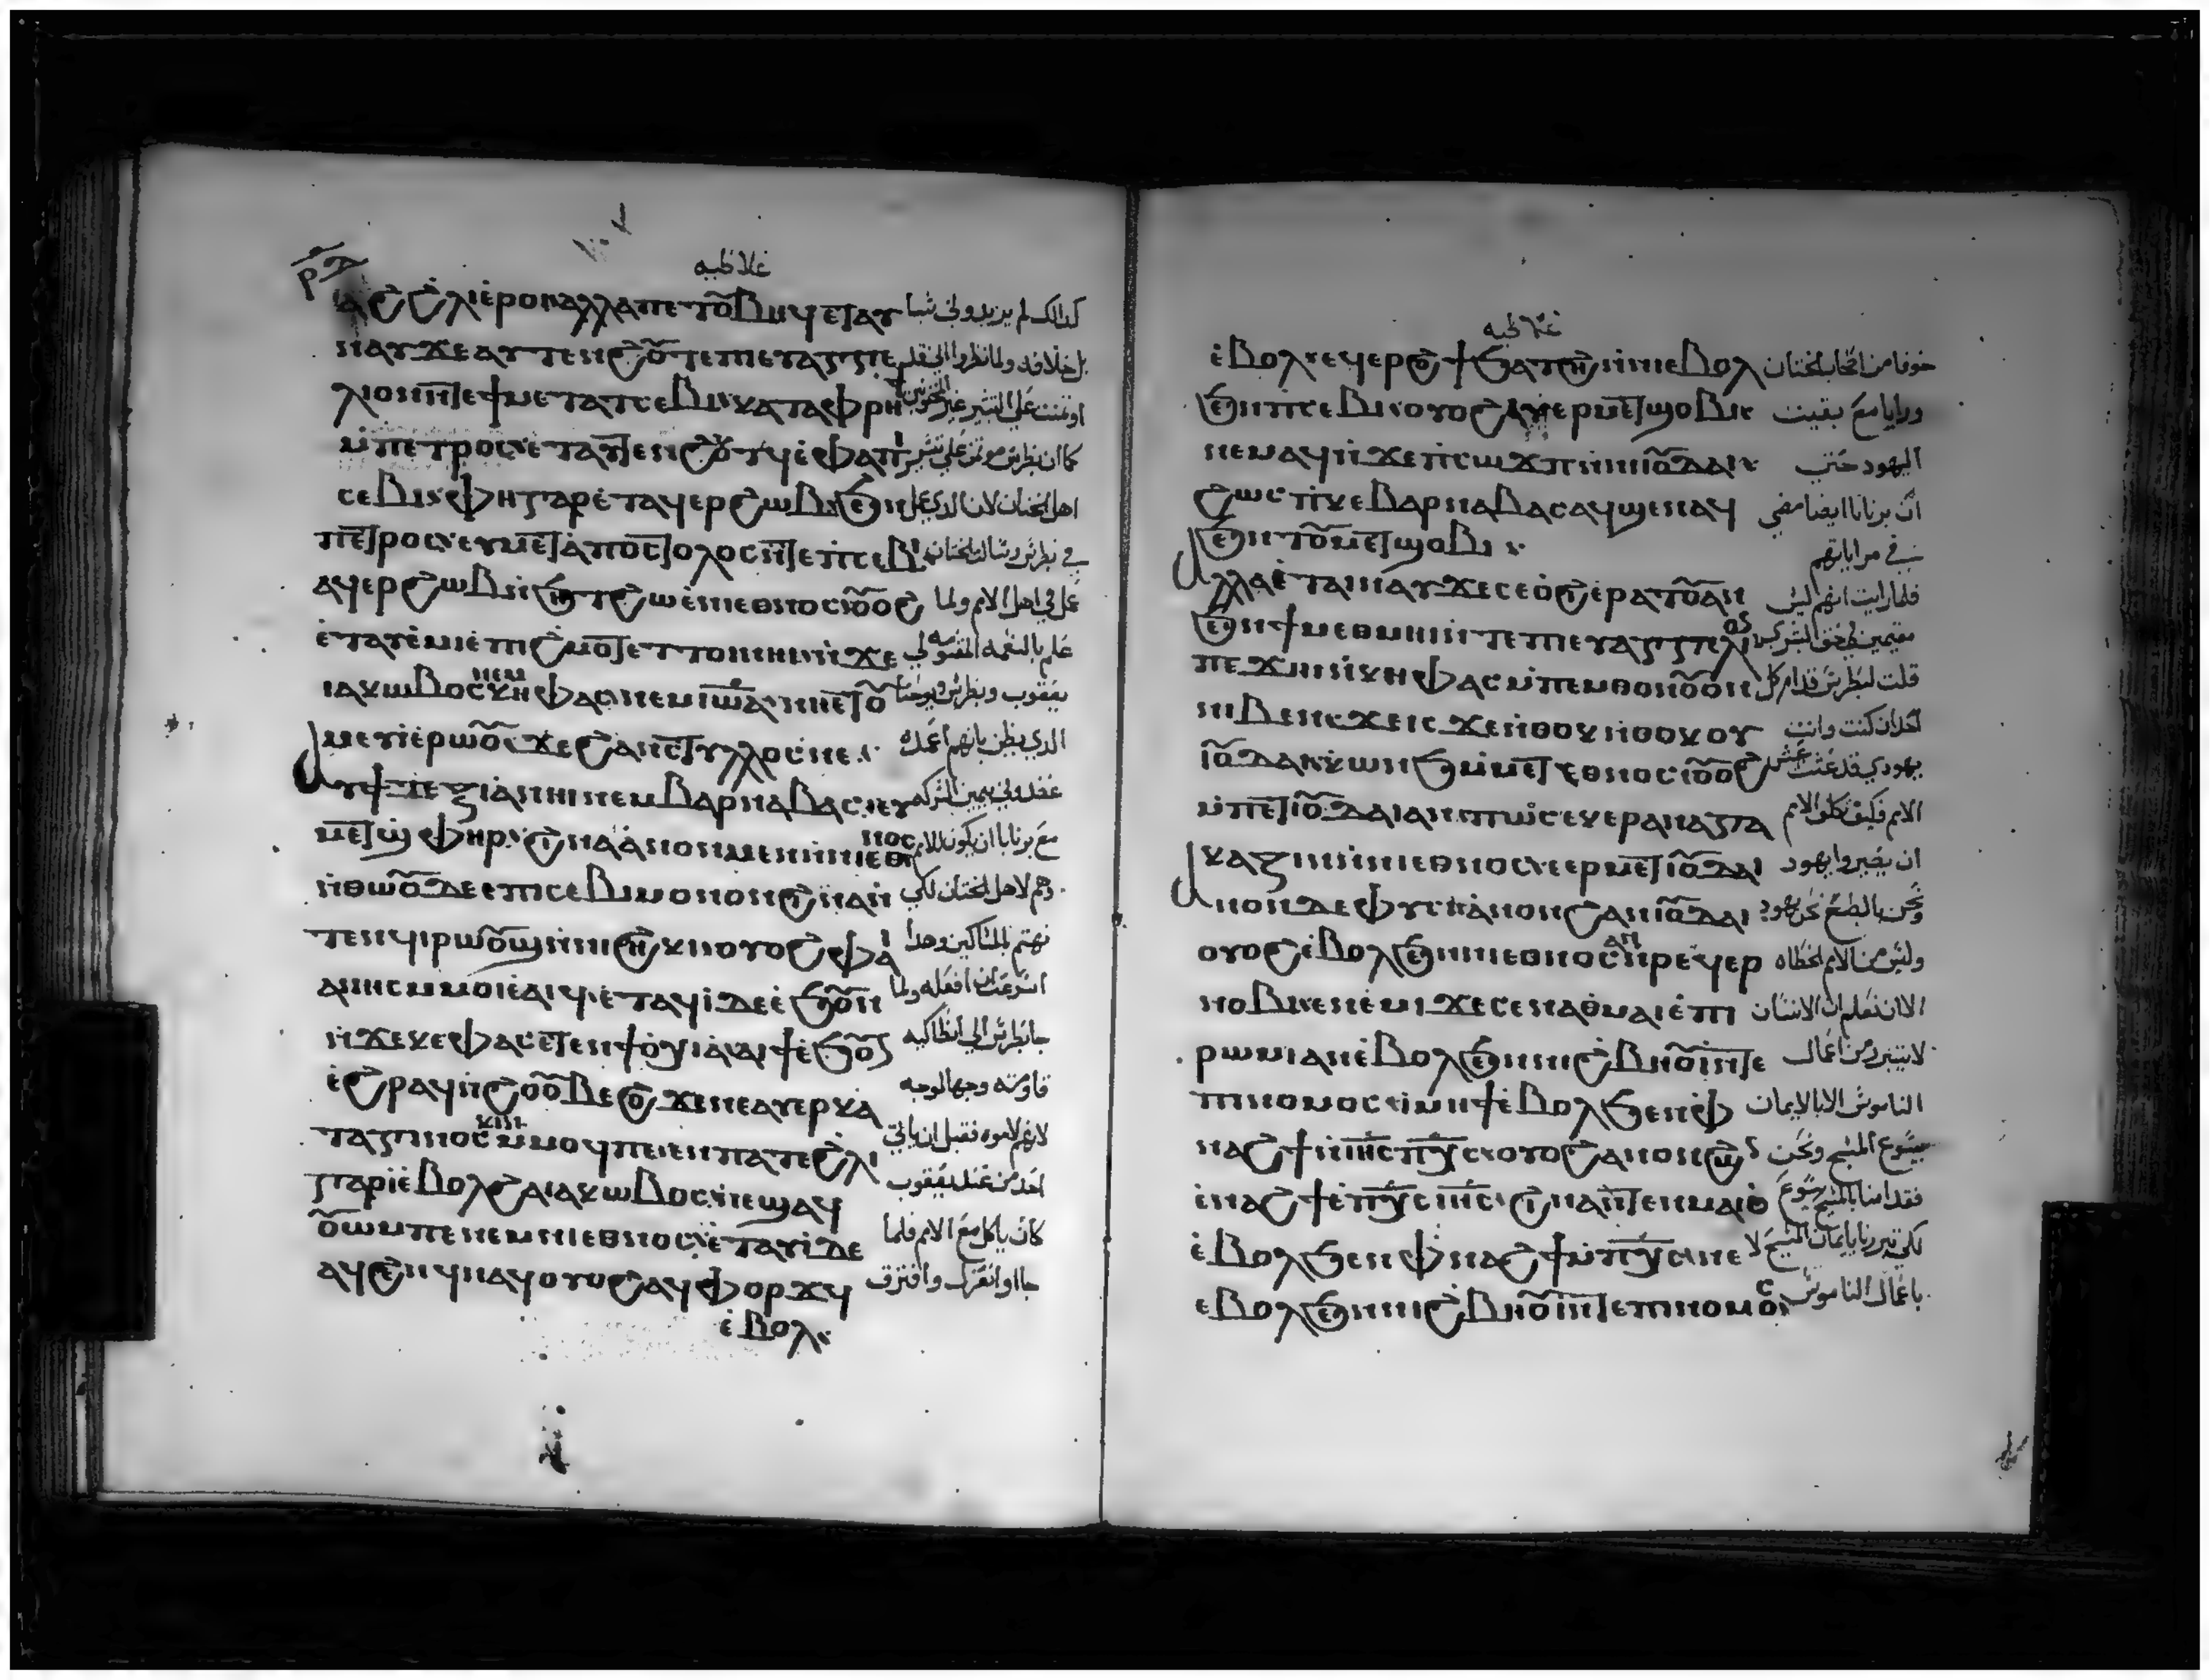 غلاطيه
ⲁϩ ϩⲗⲓ ⲉⲣⲟⲓ ⲁⲗⲗⲁ ⲡⲉⲧⲟⲩⲃⲏϥ ⲉⲧⲁⲩ كذالك لم يزيدوني شيا
ⲛⲁⲩ ϫⲉ ⲁⲩⲧⲉⲛϩⲟⲩⲧ ⲉⲡⲓⲉⲩⲁⲅⲅⲉ بل خلافه ولما نظروا اني قد
ⲗⲓⲟⲛ ⲛⲧⲉ ϯⲙⲉⲧⲁⲧⲥⲉⲃⲓ ⲕⲁⲧⲁ ⲫⲣⲏϯ اوتمنت على التبشير غير المختونين
ⲙⲡⲉⲧⲣⲟⲥ ⲉⲧⲁⲩⲧⲉⲛϩⲟⲩⲧϥ ⲉⲫⲁ ⲡⲓ كما ان بطرس موتمن على تبشير
ⲥⲉⲃⲓ ⲫⲏ ⲅⲁⲣ ⲉⲧⲁϥⲉⲣϩⲱⲃ ϧⲉⲛ اهل الختان لان الذي عمل
ⲡⲉⲧⲣⲟⲥ ⲉⲩⲙⲉⲧⲁⲡⲟⲥⲧⲟⲗⲟⲥ ⲛⲧⲉ ⲡⲥⲉⲃⲓ في بطرس رسالة الختان
ⲁϥⲉⲣϩⲱⲃ ⲛϧⲏⲧ ϩⲱ ⲉⲛⲓⲉⲑⲛⲟⲥ ⲟⲩⲟϩ عمل في اهل الامم ولما
ⲉⲧⲁⲩⲉⲙⲓ ⲉⲡⲓϩⲙⲟⲧ ⲉⲧⲧⲟⲓ ⲛⲏⲓ ⲛϫⲉ علم بالنعمه المقسومه لي
ⲓⲁⲕⲱⲃⲟⲥ ⲛⲉⲙ ⲕⲏⲫⲁⲥ ⲛⲉⲙ ⲓⲱⲁⲛⲛⲏⲥ ⲛⲉⲧⲟⲩ يعقوب وبطرس ويوحنا
ⲙⲉⲩⲓ ⲉⲣⲱⲟⲩ ϫⲉ ϩⲁⲛⲥⲧⲩⲗⲗⲟⲥ ⲛⲉ الذي يظن بانهم اعمده
ⲁⲩϯ ⲇⲉⲝⲓⲁ ⲛⲏⲓ ⲛⲉⲙ ⲃⲁⲣⲛⲁⲃⲁⲥ ⲛⲉⲩ عقدوني يمين الشركه
ⲙⲉⲧϣⲫⲏⲣ ϩⲓⲛⲁ ⲁⲛⲟⲛ ⲙⲉⲛ ⲉⲛⲓⲉⲑⲛⲟⲥ مع برنابا ان نكون للامم
ⲛⲑⲱⲟⲩ ⲇⲉ ⲉⲡⲥⲉⲃⲓ ⲙⲟⲛⲟⲛ ϩⲓⲛⲁ ⲛ هم لاهل الختان لكي
ⲧⲉⲛϥⲓⲣⲱⲟⲩϣ ⲛⲛⲓϩⲏⲕⲓ ⲟⲩⲟϩ ⲫⲁⲓ نهتم بالمساكين وهذا
ⲁⲓⲓⲏⲥ ⲙⲙⲟⲓ ⲉⲁⲓϥ ⲉⲧⲁϥⲓ ⲇⲉ ⲉϧⲟⲩⲛ اسرعت ان افعله ولما
ⲛϫⲉ ⲕⲉⲫⲁⲥ ⲉⲧⲉⲛϯⲟⲭⲓⲁ ⲁⲓϯ ⲉϧⲟⲩⲛ جا بطرس الي انطاكيه
ⲉϩⲣⲁϥ ⲛϩⲟ ⲟⲩⲃⲉ ϩⲟ ϫⲉ ⲛⲉ ⲁⲩⲉⲣⲕⲁ قاومته وجها لوجه
ⲧⲁⲅⲓⲛⲟⲥⲕⲓⲛ ⲙⲙⲟϥ ⲡⲉ ⲙⲡⲁⲧⲉ ϩⲗⲓ لانهم لاموه فقبل ان ياتي
ⲅⲁⲣ ⲓ ⲉⲃⲟⲗ ϩⲁ ⲓⲁⲕⲱⲃⲟⲥ ⲛⲉϣⲁϥ احد من عند يعقوب
ⲟⲩⲱⲙ ⲡⲉ ⲛⲉⲙ ⲛⲓⲉⲑⲛⲟⲥ ⲉⲧⲁⲩⲓ ⲇⲉ كان ياكل مع الامم فلما
ⲁϥϩⲉⲛϥ ⲛⲁϥ ⲟⲩⲟϩ ⲁϥⲫⲟⲣϫϥ جااو انعزل وافترق
ⲉⲃⲟⲗ
غلاطيه
ⲉⲃⲟⲗ ⲉϥⲉⲣϩⲟϯ ϧⲁⲧϩⲏ ⲛⲛⲓⲉⲃⲟⲗ خوفا من اصحاب الختان
ϧⲉⲛ ⲡⲥⲉⲃⲓ ⲟⲩⲟϩ ⲁϥⲉⲣⲙⲉⲧϣⲟⲃⲓ ورايا مع بقيت
ⲛⲉⲙⲁϥ ⲛϫⲉ ⲡⲥⲱϫⲡ ⲛⲛⲓⲓⲟⲩⲇⲁⲓ اليهود حتى
ϩⲱⲥ ⲛⲧⲉ ⲕⲉⲃⲁⲣⲛⲁⲃⲁⲥ ⲁϥϣⲉⲛⲁϥ ان برنابا ايضا مضي
ϧⲉⲛ ⲧⲟⲩⲙⲉⲧϣⲟⲃⲓ في مراياتهم
ⲁⲗⲗⲁ ⲉⲧⲁⲓⲛⲁⲩ ϫⲉ ⲥⲉⲟϩⲓ ⲉⲣⲁⲧⲟⲩ ⲁⲛ فلما رايت انهم ليس
ϧⲉⲛ ϯⲙⲉⲑⲙⲏⲓ ⲛⲧⲉ ⲡⲓⲉⲩⲁⲅⲅⲉⲗⲓⲟⲛ
ⲡⲉϫⲏⲓ ⲛⲕⲏⲫⲁⲥ ⲙⲡⲉⲙⲑⲟ ⲛⲟⲩⲟⲛ قلت لبطرس قدام كل
ⲛⲓⲃⲉⲛ ϫⲉ ⲓⲥϫⲉ ⲛⲑⲟⲕ ⲛⲑⲟⲕ ⲟⲩ احد ان كنت وانت
ⲓⲟⲩⲇⲁⲓ ⲕⲱⲛϧ ⲙⲙⲉⲧⲉⲑⲛⲟⲥ ⲟⲩⲟϩ يهودي قد عشت عيش
ⲙⲙⲉⲧⲓⲟⲩⲇⲁⲓ ⲁⲛ ⲡⲱⲥ ⲉⲕⲉⲣⲁⲛⲁⲅ الامم فكيف تكلف الامم
ⲕⲁⲍⲓⲛ ⲛⲛⲓⲉⲑⲛⲟⲥ ⲉⲉⲣⲙⲉⲧⲓⲟⲩⲇⲁⲓ ان يصيروا يهود
ⲁⲛⲟⲛ ⲇⲉ ⲫⲩⲥⲓ ⲁⲛⲟⲛ ϩⲁⲛⲓⲟⲩⲇⲁⲓ ونحن بالطبع نحن يهود
ⲟⲩⲟϩ ⲉⲃⲟⲗ ϧⲉⲛ ⲛⲓⲉⲑⲛⲟⲥ ⲁⲛ ⲛⲣⲉϥⲉⲣ وليس من الامم الخطاه
ⲛⲟⲃⲓ ⲧⲉⲛⲉⲙⲓ ϫⲉ ⲥⲉⲛⲁⲑⲙⲁⲓⲉ ⲡⲓ الان نعلم ان الانسان
ⲣⲱⲙⲓ ⲁⲛ ⲉⲃⲟⲗ ϧⲉⲛ ⲛⲓϩⲃⲏⲟⲩⲓ ⲛⲧⲉ لا يتبرر من اعمال
ⲡⲓⲛⲟⲙⲟⲥ ⲓⲙⲏϯ ⲉⲃⲟⲗ ϧⲉⲛ ⲫ الناموس الا بالايمان
ⲛⲁϩϯ ⲛⲓⲏⲥ ⲡⲭⲥ ⲟⲩⲟϩ ⲁⲛⲟⲛ ϩⲱⲛ بيسوع المسيح ونحن
ⲉⲛⲁϩϯ ⲉⲡⲭⲥ ⲓⲏⲥ ϩⲓⲛⲁ ⲛⲧⲉⲛⲙⲁⲓⲟ فقد امنا بالمسيح يسوع
ⲉⲃⲟⲗ ϧⲉⲛ ⲫⲛⲁϩϯ ⲙⲡⲭⲥ ⲛⲉ لكي تبررنا بايمان المسيح لا
ⲉⲃⲟⲗ ϧⲉⲛ ⲛⲓϩⲃⲏⲟⲩⲓ ⲛⲧⲉ ⲡⲓⲛⲟⲙⲟⲥ باعمال الناموس